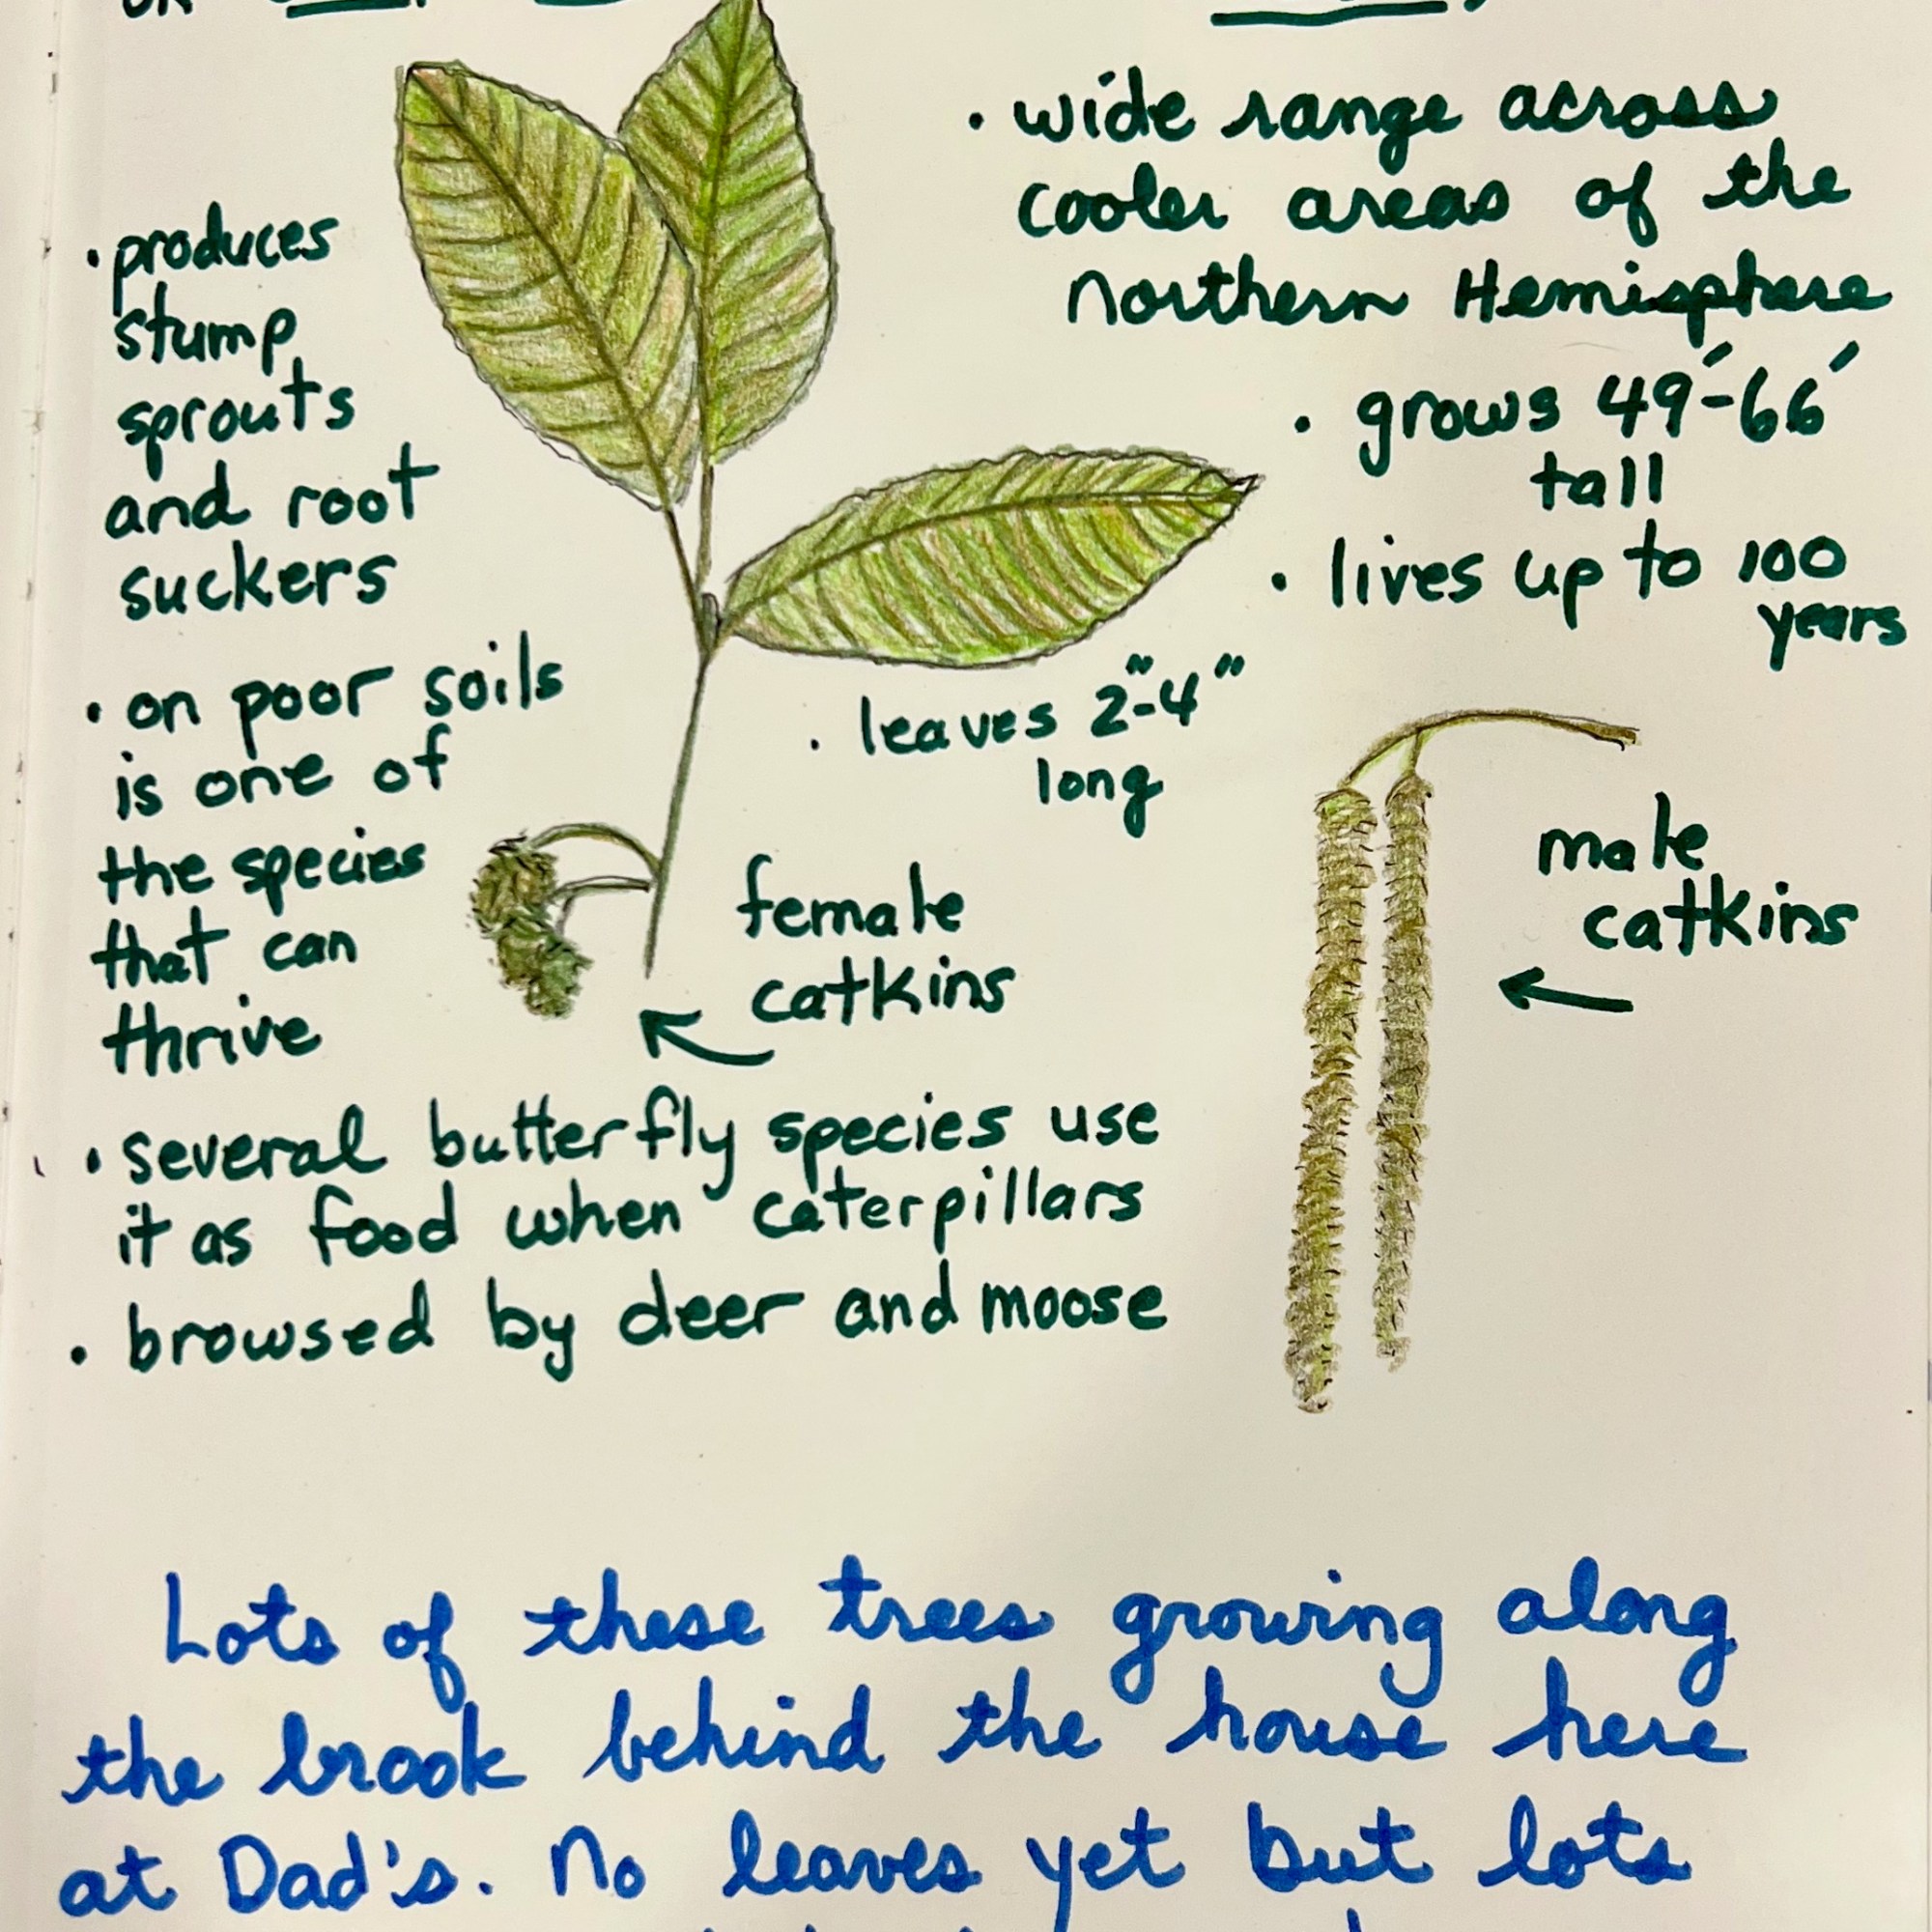 OR
• wide range across
cooler areas of the
Northern Hemisphere
• grows 49'-66'
tall
• lives up to 100
years
• produces
stump
sprouts
and root
suckers
• on poor soils
is one of
the species
that can
thrive
• leaves 2"-4"
long
female
catkins
male
catkins
• several butterfly species use
it as food when caterpillars
• browsed by deer and moose
Lots of these trees growing along
the brook behind the house here
at Dad's. No leaves yet but lots